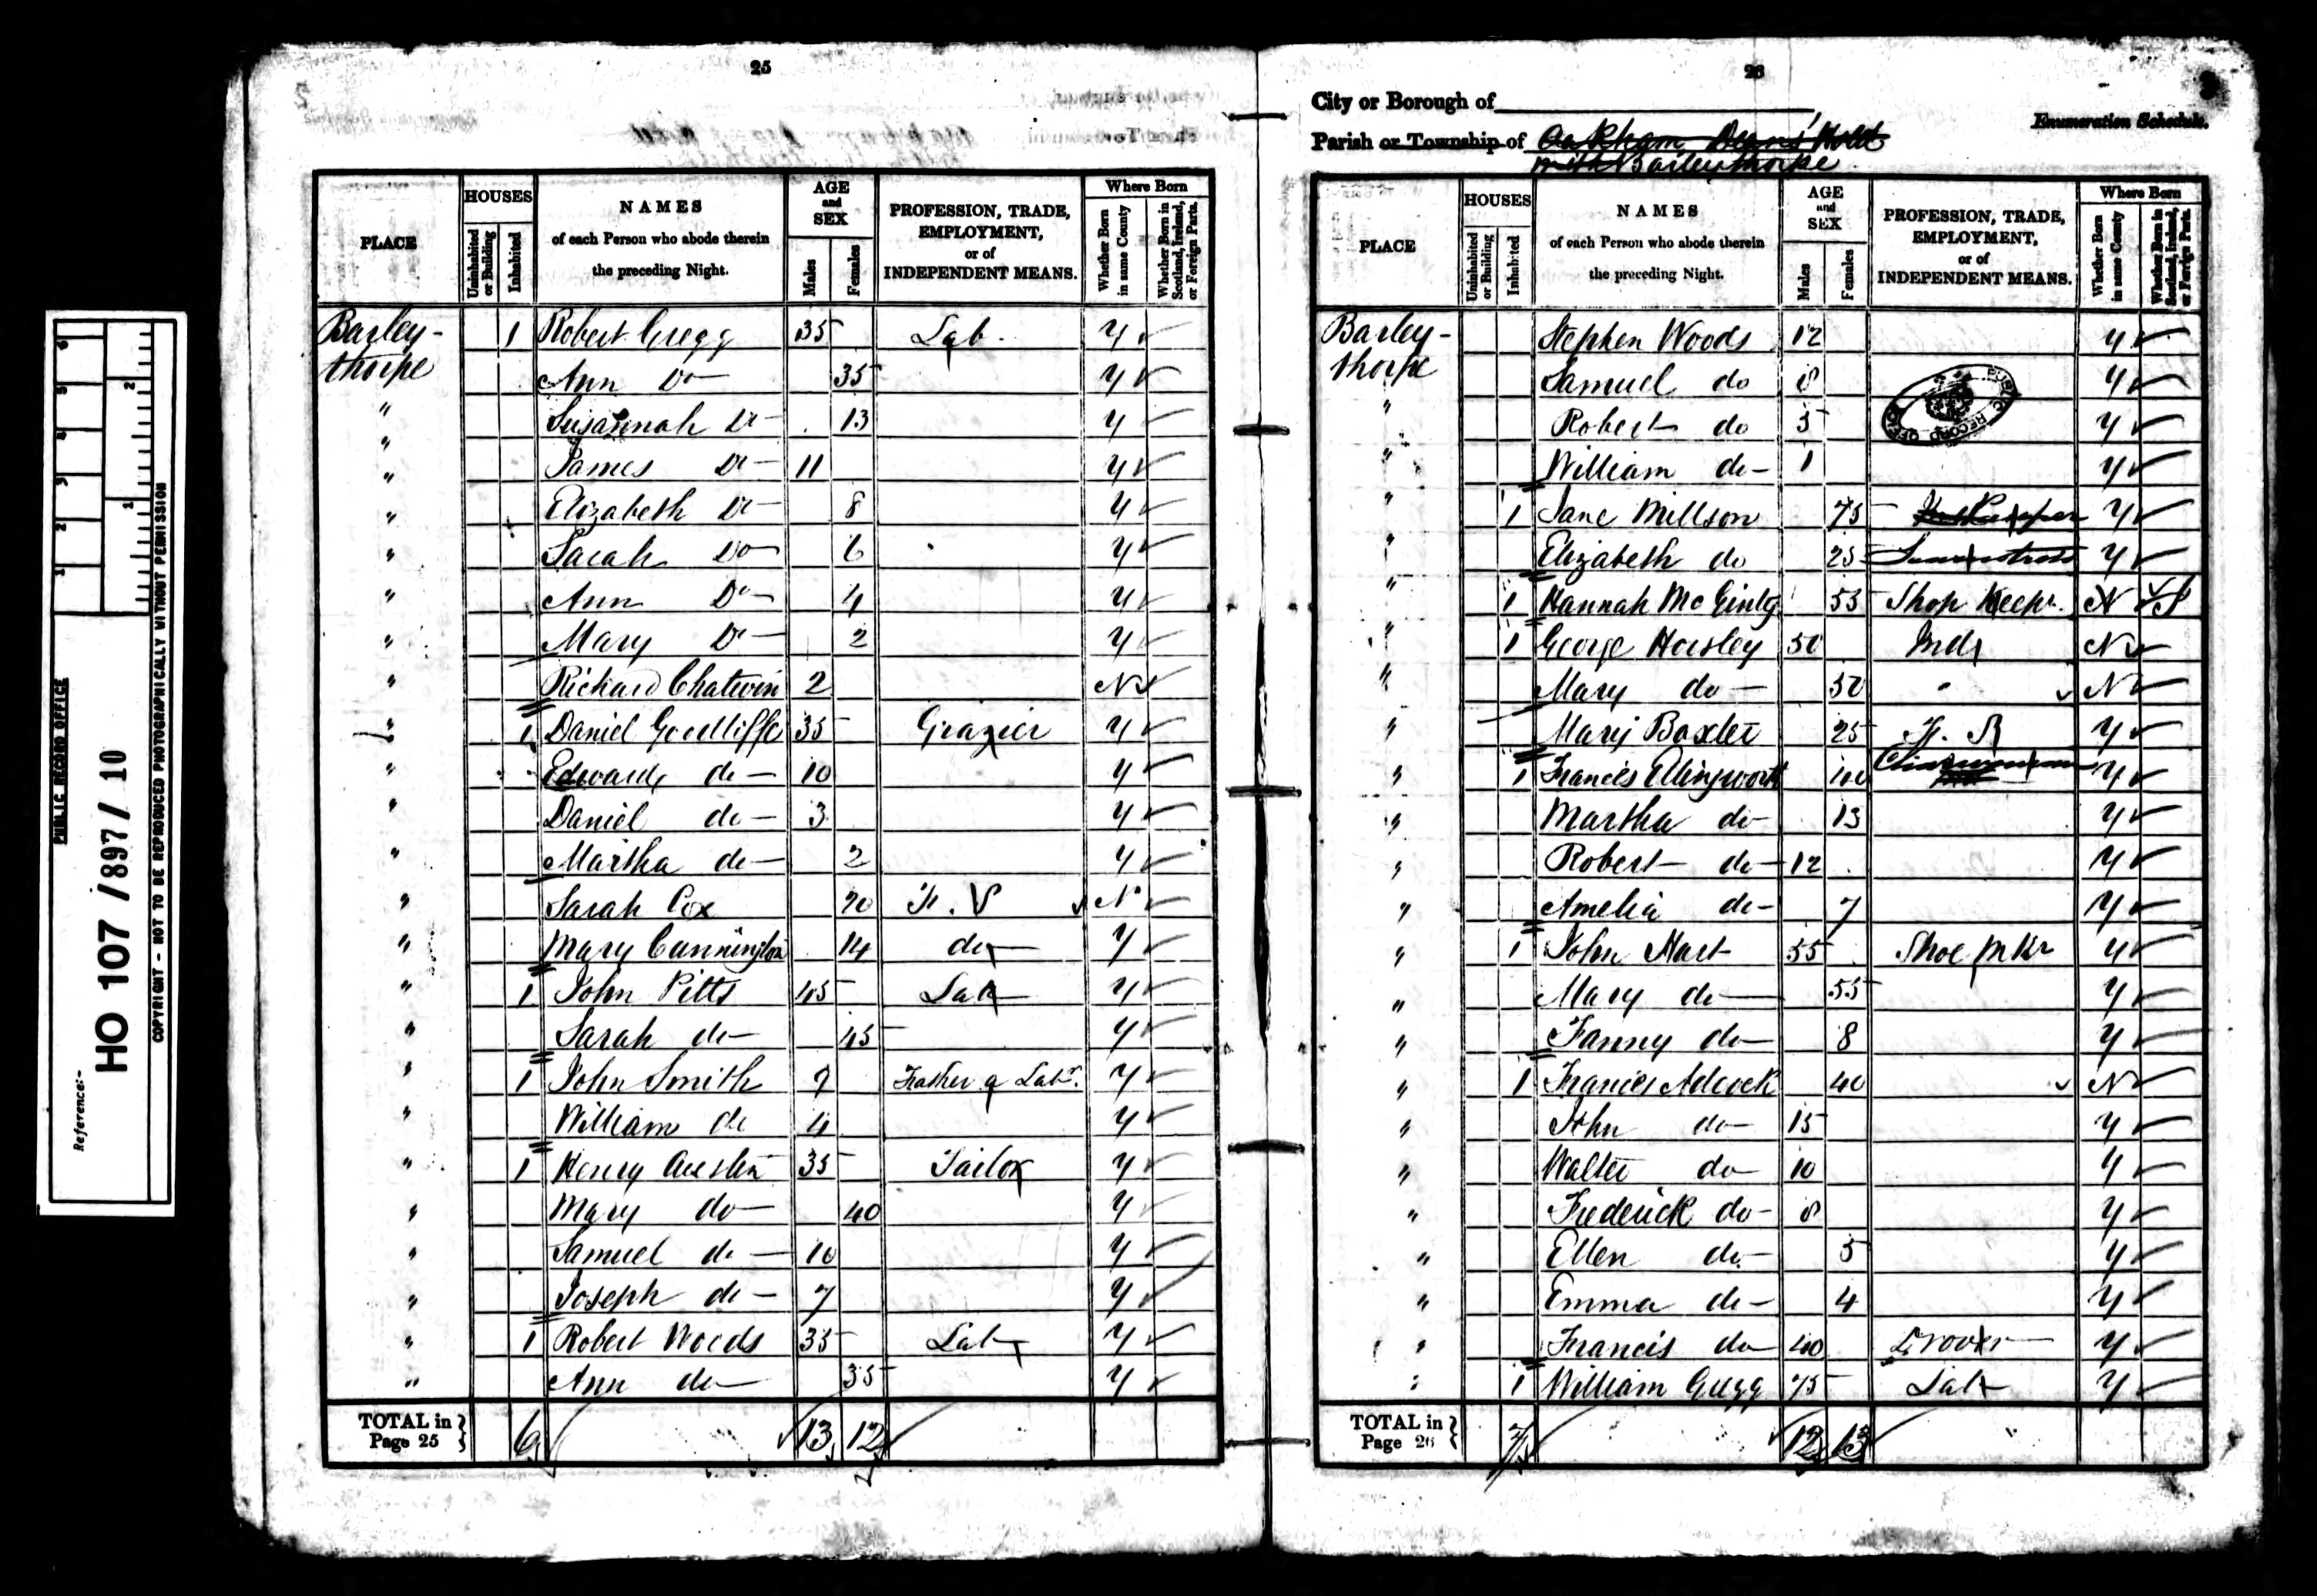 PUBLIC RECORD OFFICE
Reference:-
HO 107 / 897 / 10
COPYRIGHT - NOT TO BE REPRODUCED PHOTOGRAPHICALLY WITHOUT PERMISSION
1 2 3 4 5 6
1 2
25
PLACE
HOUSES
Uninhabited or Building
Inhabited
NAMES
of each Person who abode therein
the preceding Night.
AGE and SEX
Males
Females
PROFESSION, TRADE, EMPLOYMENT, or of INDEPENDENT MEANS.
Where Born
Whether Born in same County
Whether Born in Scotland, Ireland, or Foreign Parts.
Barley- 1 Robert Gregg 35 Lab. Y
thorpe Ann Do 35 Y
" Susannah Do 13 Y
" James Do 11 Y
" Elizabeth Do 8 Y
" Sarah Do 6 Y
" Ann Do 4 Y
" Mary Do 2 Y
" Richard Chatwin 2 N
" 1 Daniel Goodliffe 35 Grazier Y
" Edward do 10 Y
" Daniel do 3 Y
" Martha do 2 Y
" Sarah Cox 20 F. S N
" Mary Cunnington 14 do Y
" 1 John Pitts 45 Lab Y
" Sarah do 45 Y
" 1 John Smith 7 Father a Labr. Y
" William do 4 Y
" 1 Henry Austin 35 Tailor Y
" Mary do 40 Y
" Samuel do 10 Y
" Joseph do 7 Y
" 1 Robert Woods 35 Lab Y
" Ann do 35 Y
TOTAL in Page 25 6 13 12
26
City or Borough of
Enumeration Schedule.
Parish or Township of Oakham Deans Hold
with Barleythorpe
PLACE
HOUSES
Uninhabited or Building
Inhabited
NAMES
of each Person who abode therein
the preceding Night.
AGE and SEX
Males
Females
PROFESSION, TRADE, EMPLOYMENT, or of INDEPENDENT MEANS.
Where Born
Whether Born in same County
Whether Born in Scotland, Ireland, or Foreign Parts.
Barley- Stephen Woods 12 Y
thorpe Samuel do 8 Y
" Robert do 5 Y
" William do 1 Y
PUBLIC RECORD OFFICE
" 1 Jane Millson 75 Y
" Elizabeth do 25 Y
" 1 Hannah McGinty 55 Shop Keepr. N
" 1 George Horsley 50 Ind N
" Mary do 50 " N
" Mary Baxter 25 F. S Y
" 1 Francis Ellingworth 40 Charwoman Y
" Martha do 13 Y
" Robert do 12 Y
" Amelia do 7 Y
" 1 John Hart 55 Shoe Mkr Y
" Mary do 55 Y
" Fanny do 8 Y
" 1 Frances Adcock 40 N
" John do 15 Y
" Walter do 10 Y
" Frederick do 8 Y
" Ellen do 5 Y
" Emma do 4 Y
" Francis do 40 Drover Y
" 1 William Gregg 75 Lab Y
TOTAL in Page 26 7 12 13